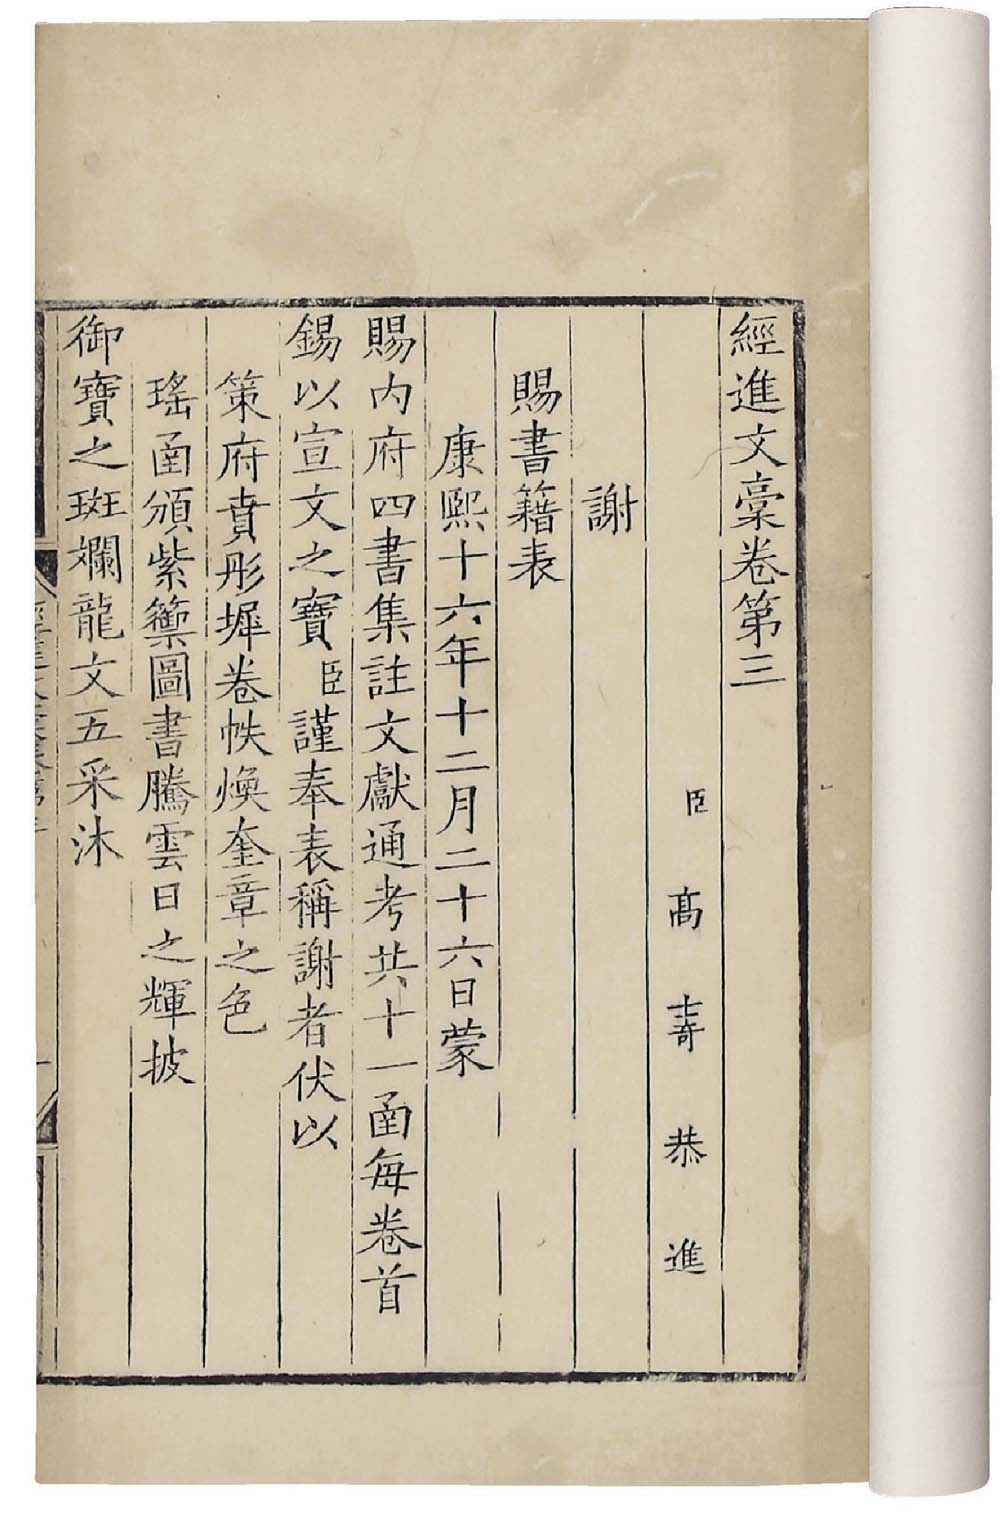 經進文稾卷第三
臣高士奇恭進
謝
賜書籍表
康熙十六年十二月二十六日蒙
賜内府四書集註文獻通考共十一函每卷首
錫以宣文之寶臣謹奉表稱謝者伏以
策府賁彤墀卷帙煥奎章之色
瑤函頒紫籞圖書騰雲日之輝披
御寶之斑斕龍文五采沐